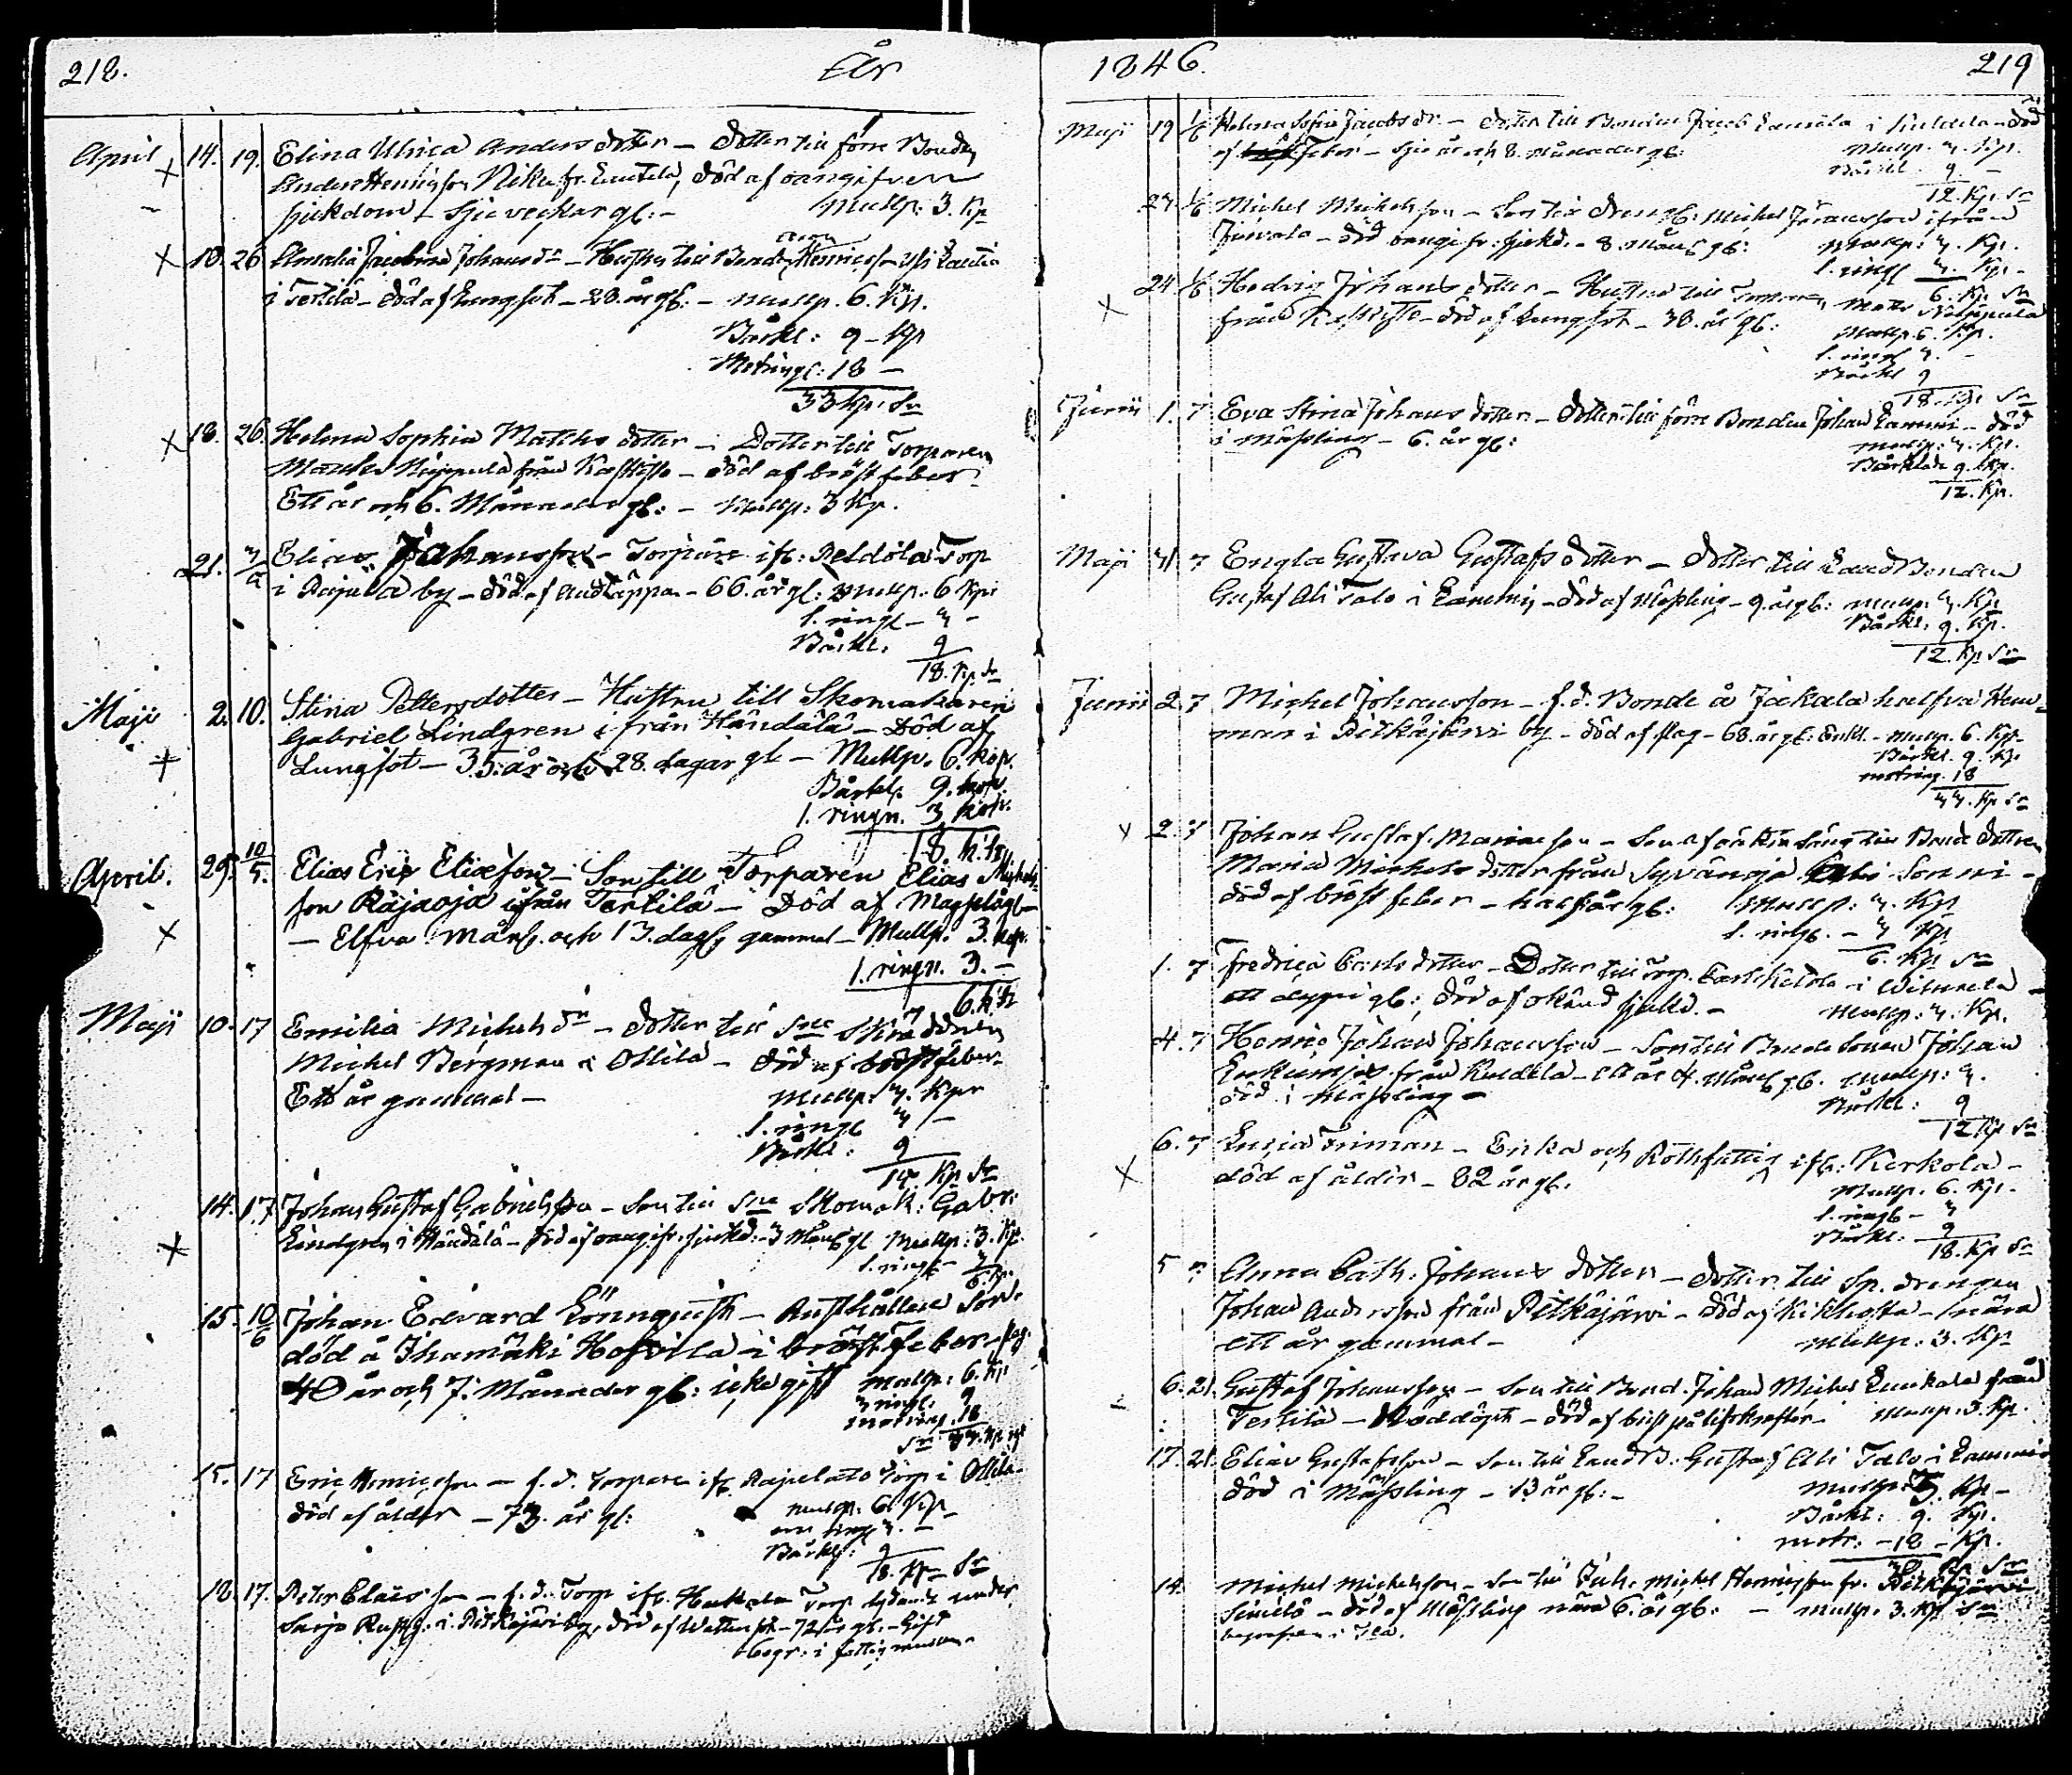 218. År
April 14. 19. Elina Ulrica Andersdotter - Dotter till förre Bonden
Anders Henricsson Niku fr. , död af oangifven
sjukdom - sju veckor gl: - Mullp: 3. Kp
18. 26 Amalia Jacobina Johansdr - Hustru till Bonden Henricsson
i Tertilä - död af Lungsot - 28. år gl: - Mullp. 6. Kp.
Bårkl: 9 - Kp
Motringn: 18 -
33 Kp. Sr
18. 26. Helena Sophia Mattsdotter - Dotter till Torparen
från - död af bröstfeber
Ett år och 6. Månader gl: - Mullp: 3 Kp.
21. 3/5 Elias Johansson - Torpare ifr: Peldola Torp
i by - död af Andtäppa - 66. år gl: Mullp. 6 Kp
1. ringn - 3 -
Bårkl. 9
18. Kp. Sr
Maji 2. 10. Stina Pettersdotter - Hustru till Skomakaren
Gabriel Lindgren ifrån Händälä - Död af
Lungsot - 35. år och 28. dagar gl - Mullp. 6. kop.
Bårkl. 9. kop.
1. ringn. 3 kop.
18. k. Sr
April. 29. 10/5. Elias Eric Eliasson - Son till Torparen Elias Michels-
son Räjaoja ifrån Tertilä - Död af Magplågor
- Elfva Mån. och 13. dagar gammal - Mullp. 3. kop.
1. ringn. 3. -
6. k. Sr
Maji 10. 17 Emilia Michelsdr - Dotter till Sne Skräddaren
Michel Bergman i Ottila - död af bröstfeber
Ett år gammal - Mullp. 3. Kpr
1. ringn 3 -
Bårkl: 9
15. Kp. Sr
14. 17 Johan Gustaf Gabrielsson - Son till Sne Skomak: Gabr:
Lindgren i Händälä - död af oangifr. sjukd: - 3 Mån gl Mullp: 3. Kp.
1. ringn - 3
6. Kp.
15. 10/6 Johan Edvard Lönnqvist - Rusthållare Son.
död å Ihamäki Hofvila - i bröstfeber
40 år och 7. Månader gl: icke gift Mullp: 6. Kp
ringn. 9
motringn. 18
33. Kp
15. 17 Eric Henricsson - f.d. Torpare ifr. Torp i Ottila
död af ålder - 73. år gl: Mullp. 6. Kp
en ringn 3. -
Bårkl: 9
18. Kp. Sr
18. 17. Peter Eliasson - f.d. Torp ifr. Torp lydande under
Rusth. i Pitkäjärvi by, död af Wattensot - 72 år gl. - Gift
begr. i
1846. 219
Maji 19 1/6 Helena Sofia Jacobsdr. - Dotter till Bonden Jacob i - död
af feber - sju år och 8. månader gl: Mullp. 3. Kp.
Bårkl. 9 -
12. Kp. Sr
23. 1/6 Michel Michelsson - Son till Drengen Michel Johansson ifrån
Junala - död oangifr: sjukd. - 8. Mån gl: Mullp: 3. Kp.
1. ringn 3. Kp -
6. Kp. Sr
24 1/6 Hedvig Johansdotter - Hustru till Torparen Matts
från - död af Lungsot - 38. år gl: Mullp. 6. Kp.
1. ringn 3. -
Bårkl 9
18. Kp. Sr
Junii 1. 7 Eva Stina Johansdotter - Dotter till förre Bonden Johan Lammi - död
i mässling - 6. år gl: Mullp: 3. Kp.
Bårkläde 9. Kp.
12. Kp.
Maji 31 7 Engla Gustava Gustafsdotter - Dotter till LandBonden
Gustaf Ali Talo i Lammi - död af Mässling - 9. år gl: Mullp. 3. Kp
Bårkl. 9. Kp.
12. Kp Sr
Junii 2. 7 Michel Johansson - f.d. Bonde å Jakala halfva Hem-
man i Pitkäjärvi by - död af slag - 68. år gl: Enkl. - Mullp. 6. Kp
Bårkl. 9. Kp
motring. 18
33. Kp Sr
2. 7 Johan Gustaf Mariæson - Son af oäkta säng till Bond dottren
Maria Michelsdotter från Syvänoja
död af bröstfeber - half år gl: Mullp: 3. Kp
1. ringn. - 3 Kp
6. Kp Sr
1. 7 Fredrica Carlsdotter - Dotter till Torp. Carl i
ett dygn gl: död af okänd sjukd. - Mullp: 3. Kp.
4. 7 Henric Johan Johansson - Son till Bonde Sonen Johan
från - ett år 4. Mån gl. Mullp: 3.
död i Mässling - Bårkl: 9
12 Kp Sr
6. 7 Lucia Friman - Enka och Rothfattig ifr: Kerkola -
död af ålder - 82 år gl. Mullp. 6. Kp.
1. ringn - 3
Bårkl: 9
18. Kp Sr
5 7 Anna Cath: Johansdotter - Dotter till Sp. drengen
Johan Andersson från Pitkäjärvi - död af Kikhosta - nära
ett år gammal - Mullp: 3. Kp
6. 21. Gustaf Johansson - Son till Bond. Johan Michel från
Tertilä - Nöddöpt - död af brist på lifskrafter - Mullp. 3. Kp.
17. 21. Elias Gustafsson - Son till LandB. Gustaf Ali Talo i Lammi
död i Mässling - 13 år gl: - Mullp: 3. Kp -
Bårkl: 9. Kp.
motr: - 18 - Kp.
30 Kp Sr
14. Michel Michelsson - Son till Inh: Michel Henricsson fr.
- död af Mässling nära 6. år gl: - Mullp. 3. Kp Sr
begrafven i